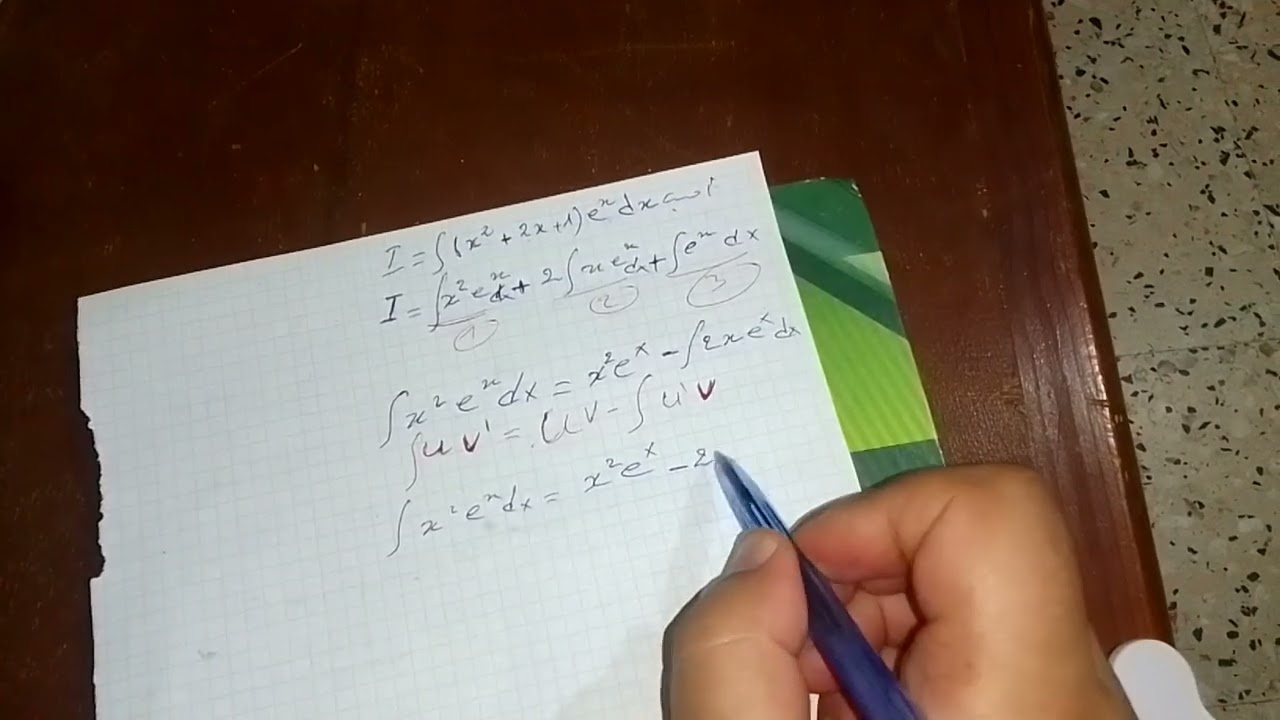 I = ∫(x² + 2x+1)eˣdx
I = ∫x²eˣdx + 2∫xeˣdx + ∫eˣ dx
① ② ③
∫x²eˣdx = x²eˣ - ∫2xeˣdx
∫uv' = UV - ∫u'v
∫x²eˣdx = x²eˣ - 2